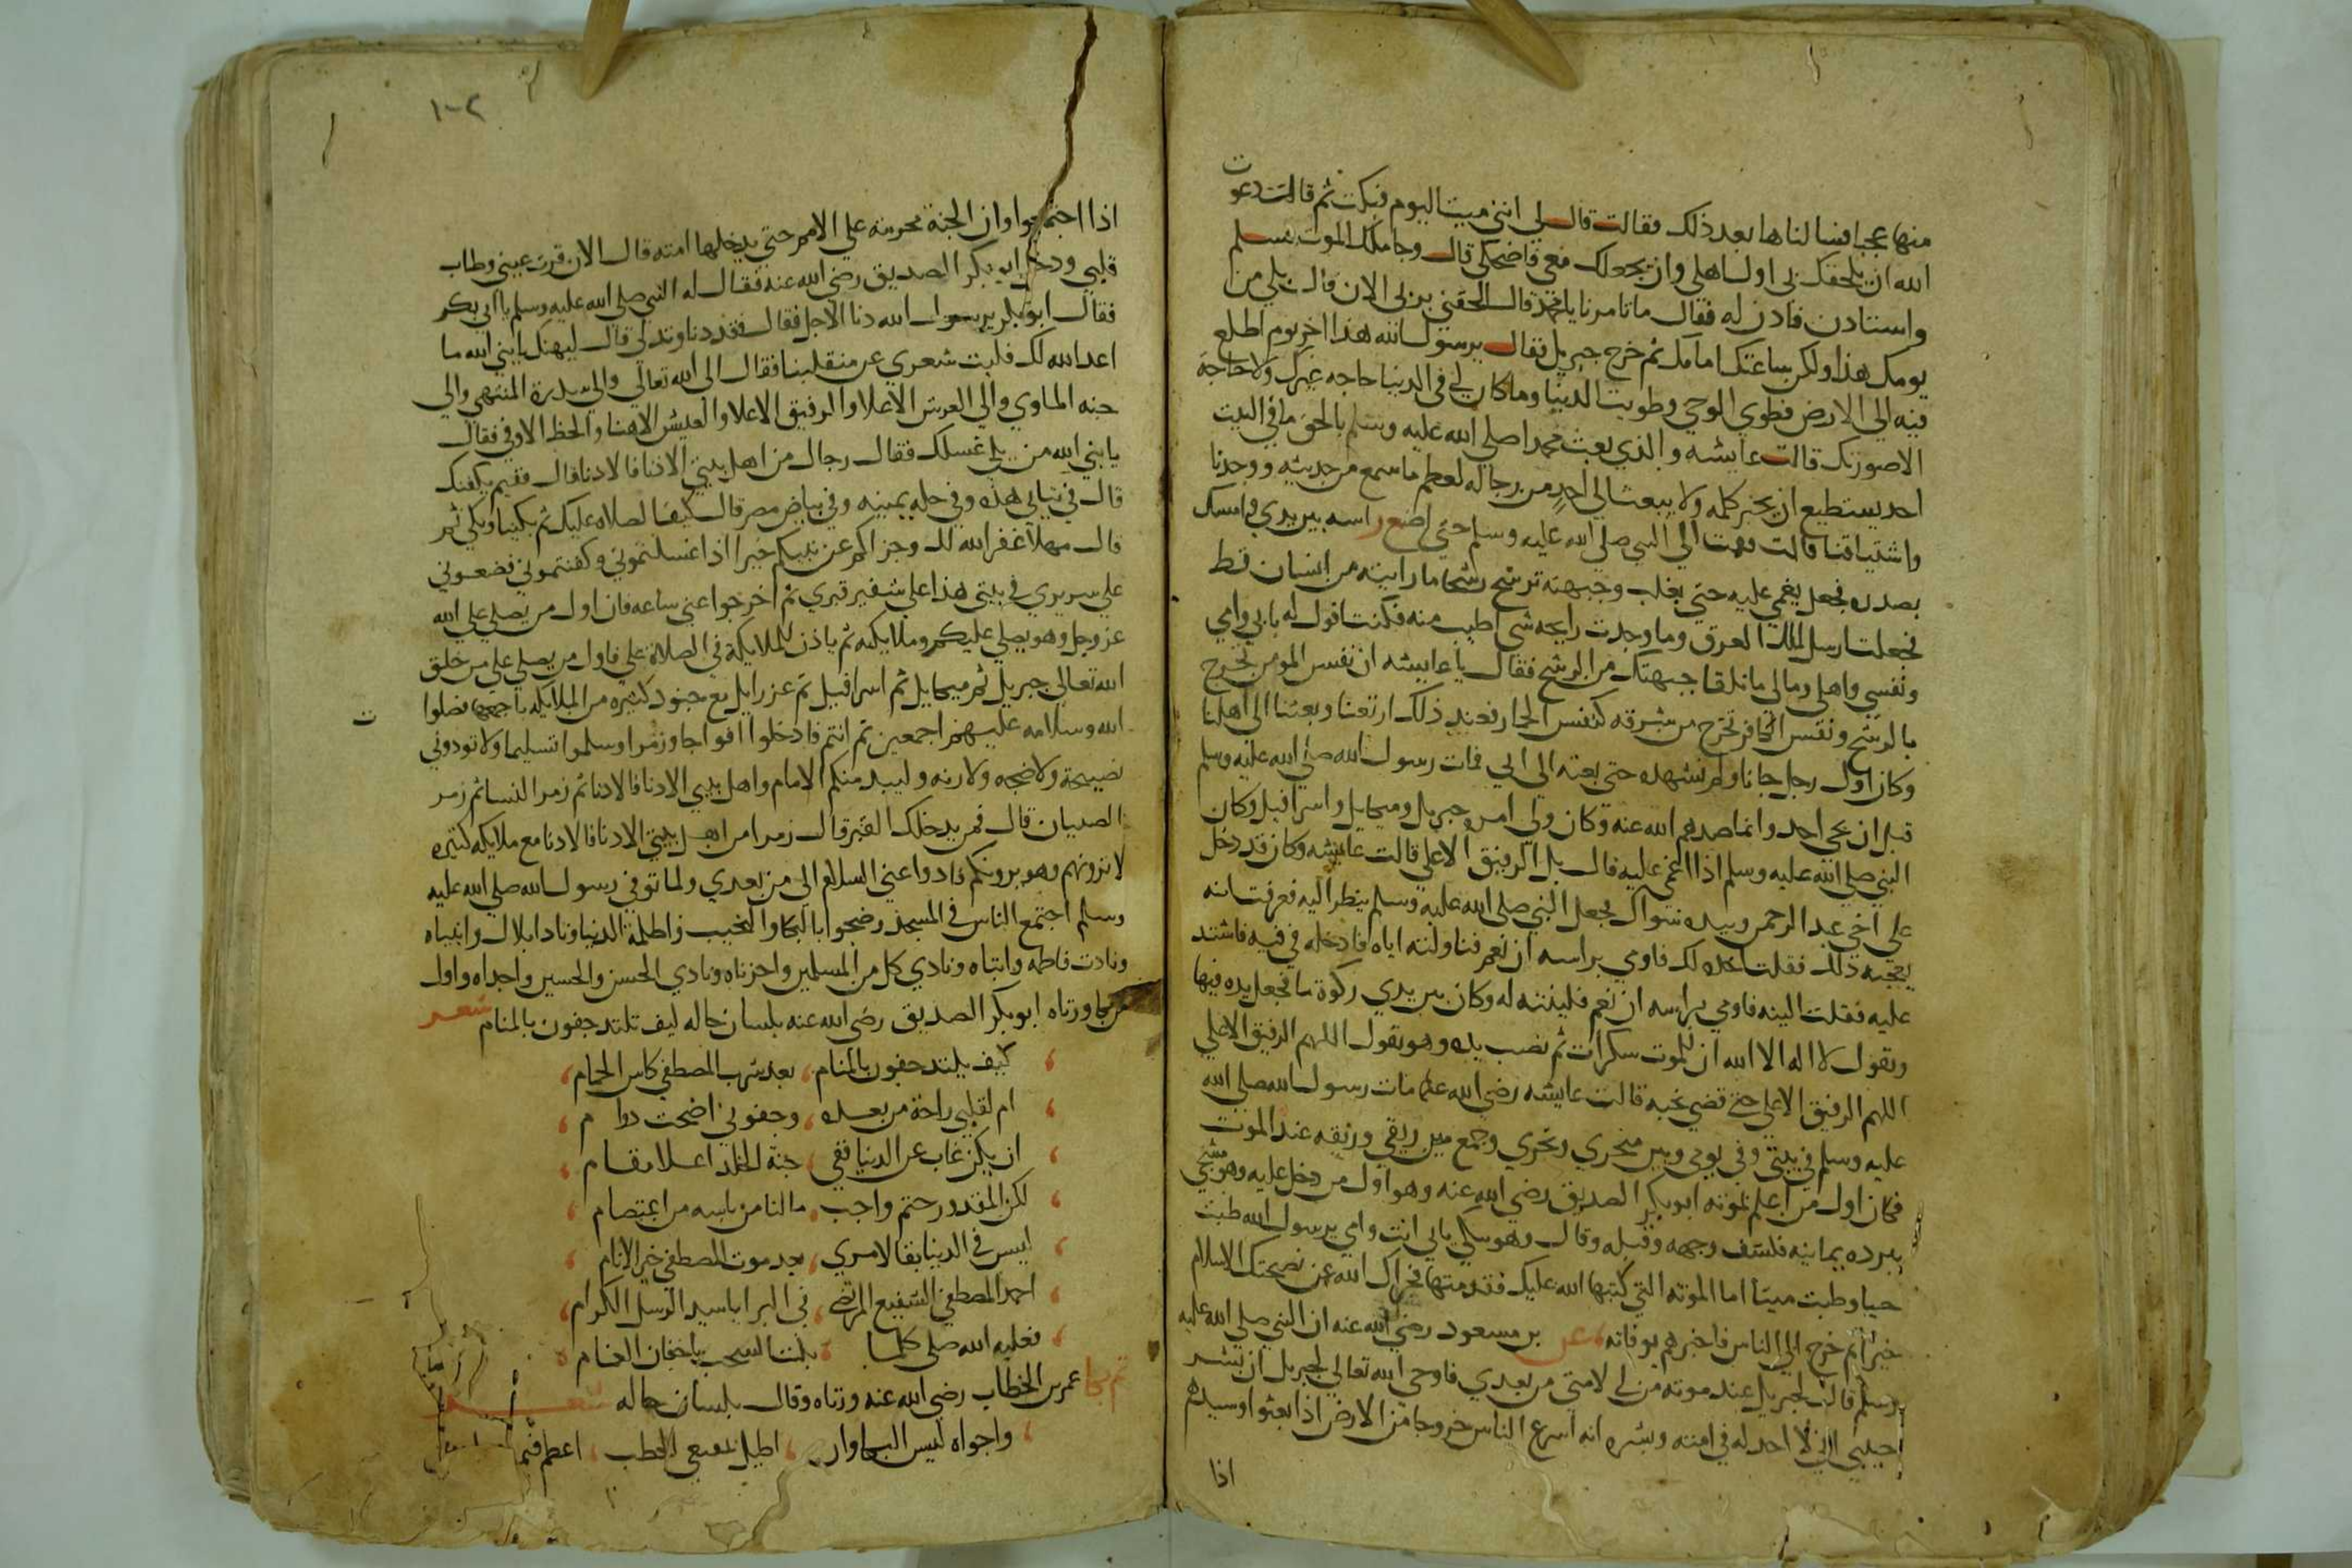 منها عجبا فسالناها بعد ذلك فقالت قال لي انني ميت اليوم فبكت ثم قالت دعوت
الله ان يلحقك بي اول اهلي وان يجعلك معي فاضحكي قال وجا ملك الموت فسلم
واستادن فادن له فقال ما تامرنا يا محمد قال الحقني بربي الان قال بلي من
يومك هذا ولكن ساعتك امامك ثم خرج جبريل فقال يرسول الله هذا اخر يوم اطلع
فيه الي الارض فطوي الوحي وطويت الدنيا وما كان لي في الدنيا حاجه غيرك ولا حاجة
الاصورتك قالت عايشه والذي بعث محمدا صلي الله عليه وسلم بالحق ما في البيت
احد يستطيع ان يخبر كلمه ولا يبعث الي احد من رجاله لعظم ما سمع من حديثه ووجدنا
واشتياقنا قالت وقمت الي النبي صلي الله عليه وسلم حتي اضع راسه بين يدي وامسك
بصدره فجعل يغمي عليه حتي يغلب وجبهته ترشح رشحا ما رايته من انسان قط
فجعلت ارسل الملك العرق وما وجدت رايحه شي اطيب منه فكنت اقول له بابي وامي
ونفسي واهلي ومالي ما تلقا جبهتك من الرشح فقال يا عايشه ان نفس المومن تخرج
بالرشح ونفس الكافر تخرج من شدقه كنفس الحمار فعند ذلك ارتعنا وبعثنا الي اهلنا
وكان اول رجل جانا ولم نشهده حتي بعثه الي ابي فمات رسول الله صلي الله عليه وسلم
قبل ان يجي احد وانما صدهم الله عنه وكان ولي امره جبريل وميكايل واسرافيل وكان
النبي صلي الله عليه وسلم اذا اغمي عليه قال بل الرفيق الاعلي قالت عايشه وكان قد دخل
علي اخي عبد الرحمن وبيده سواك فجعل النبي صلي الله عليه وسلم ينظر اليه فعرفت انه
يعجبه ذلك فقلت اخده لك فاومي براسه ان نعم فناولته اياه فادخله في فيه فاشتد
عليه فقلت الينه فاومي براسه ان نعم فلينته له وكان بين يدي ركوة ما فجعل يده فيها
ويقول لا اله الا الله ان للموت سكرات ثم نصب يده وهو يقول اللهم الرفيق الاعلي
اللهم الرفيق الاعلي حتي قضي نحبه قالت عايشه رضي الله عنها مات رسول الله صلي الله
عليه وسلم في بيتي وفي يومي وبين سحري ونحري وجمع بين ريقي وريقه عند الموت
فكان اول من اعلم بموته ابو بكر الصديق رضي الله عنه وهو اول من دخل عليه وهو مسجي
ببرده يمانيه فكشف وجهه وقبله وقال وهو يبكي بابي انت وامي يرسول الله طبت
حيا وطبت ميتا اما الموته التي كتبها الله عليك فقد متها فجزاك الله عن نصحتك الاسلام
خيرا ثم خرج الي الناس فاخبرهم بوفاته عن بن مسعود رضي الله عنه ان النبي صلي الله عليه
وسلم قال لجبريل عند موته من لي لامتي من بعدي فاوحي الله تعالي لجبريل ان بشر
حبيبي اني لا اخذله في امته وبشره انه اسرع الناس خروجا من الارض اذا بعثوا وسيدهم
اذا
١٠٢
اذا اجتمعوا وان الجنة محرمة علي الامم حتي يدخلها امته قال الان قرت عيني وطاب
قلبي ودخل ابو بكر الصديق رضي الله عنه فقال له النبي صلي الله عليه وسلم يا ابي بكر
فقال ابو بكر يرسول الله دنا الاجل فقال فقد دنا وتدلي قال ليهنك يا نبي الله ما
اعد الله لك فليت شعري عن منقلبنا فقال الي الله تعالي والي سدرة المنتهي والي
جنه الماوي والي العرش الاعلا والرفيق الاعلا والعيش الاهنا والحظ الاوفي فقال
يا نبي الله من يلي غسلك فقال رجال من اهل بيتي الادنا فالادنا قال ففيم نكفنك
قال في ثيابي هذه وفي حله يمنيه وفي بياض مصر قال كيف الصلاه عليك ثم بكينا وبكي ثم
قال مهلا غفر الله لك وجزاكم عن نبيكم خيرا اذا غسلتموني وكفنتموني فضعوني
علي سريري في بيتي هذا علي شفير قبري ثم اخرجوا عني ساعه فان اول من يصلي علي الله
عز وجل وهو يصلي عليكم وملايكته ثم ياذن للملايكة في الصلاة علي فاول من يصلي علي من خلق
الله تعالي جبريل ثم ميكايل ثم اسرافيل ثم عزرايل مع جنود كثيره من الملايكه باجمعها صلوا
ت
الله وسلامه عليهم اجمعين ثم انتم فادخلوا افواجا وزمرا وسلموا تسليما ولا تودوني
بصيحة ولا ضجه ولا رنه وليبد منكم الامام واهل بيتي الادنا فالادنا ثم زمر النسا ثم زمر
الصبيان قال فمن يدخلك القبر قال زمر من اهل بيتي الادنا فالادنا مع ملايكه كثيره
لا ترونهم وهو يرونكم فادوا عني السلام الي من بعدي ولما توفي رسول الله صلي الله عليه
وسلم اجتمع الناس في المسجد وضجوا بالبكا والنحيب واظلمة الدنيا ونادا بلال وانبياه
ونادت فاطمه وابتاه ونادي كل من المسلمين واحزناه ونادي الحسن والحسين واجداه واول
من جا ورثاه ابو بكر الصديق رضي الله عنه بلسان حاله كيف تلتد جفون بالمنام شعر
كيف يلتد جفون بالمنام، بعد شرب المصطفي كاس الحمام،
ام لقلبي راحة من بعده، وجفوني اضحت دوام،
ان يكن غاب عن الدنيا ففي، جنة الخلد اعلا مقام،
لكن المقدور حتم واجب، ما لنا من باسه من اعتصام،
ايسر في الدنيا بقا لامري، بعد موت المصطفي خير الانام،
احمد المصطفي الشفيع المرتضي، في البرايا سيد الرسل الكرام،
فعليه الله صلي كلما، بلت السحب باجفان الغمام
ثم جا عمر بن الخطاب رضي الله عنه ورثاه وقال بلسان حاله شعر
واجواه ليس البكا وان، اطيل الخطب، اعظم